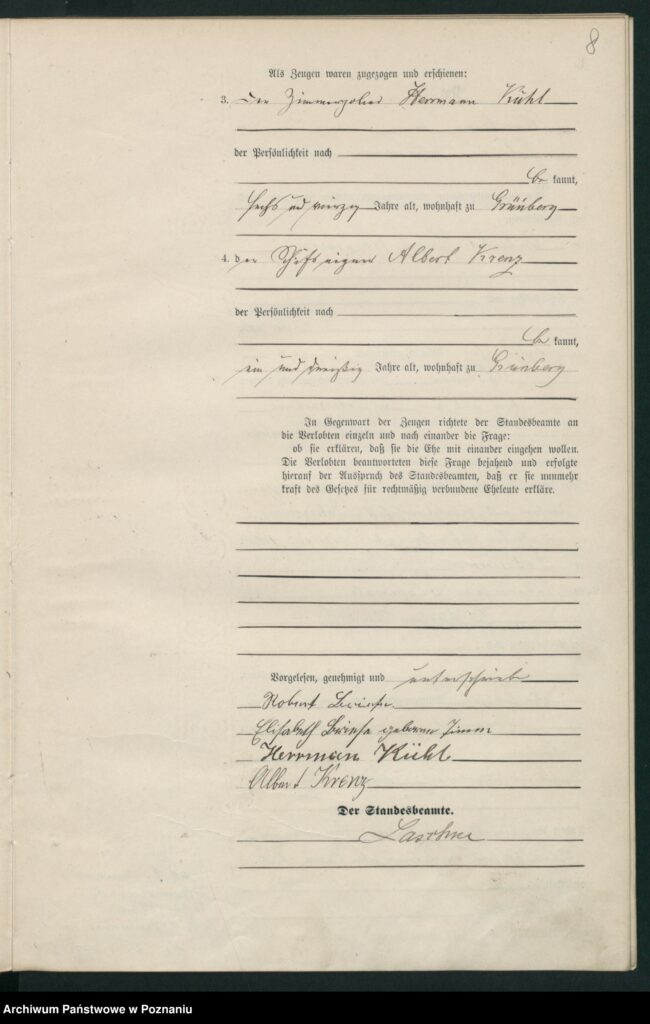 8
Als Zeugen waren zugezogen und erschienen:
3. der Zimmerpolier Herrmann Kühl
der Persönlichkeit nach
be kannt,
sechs und vierzig Jahre alt, wohnhaft zu Grünberg
4. der Schifseigner Albert Krenz
der Persönlichkeit nach
be kannt,
ein und dreißig Jahre alt, wohnhaft zu Grünberg
In Gegenwart der Zeugen richtete der Standesbeamte an
die Verlobten einzeln und nach einander die Frage:
ob sie erklären, daß sie die Ehe mit einander eingehen wollen.
Die Verlobten beantworteten diese Frage bejahend und erfolgte
hierauf der Ausspruch des Standesbeamten, daß er sie nunmehr
kraft des Gesetzes für rechtmäßig verbundene Eheleute erkläre.
Vorgelesen, genehmigt und unterschrieben
Robert Briese
Elisabeth Briese geborene Timm
Herrman Kühl
Albert Krenz
Der Standesbeamte.
Archiwum Państwowe w Poznaniu